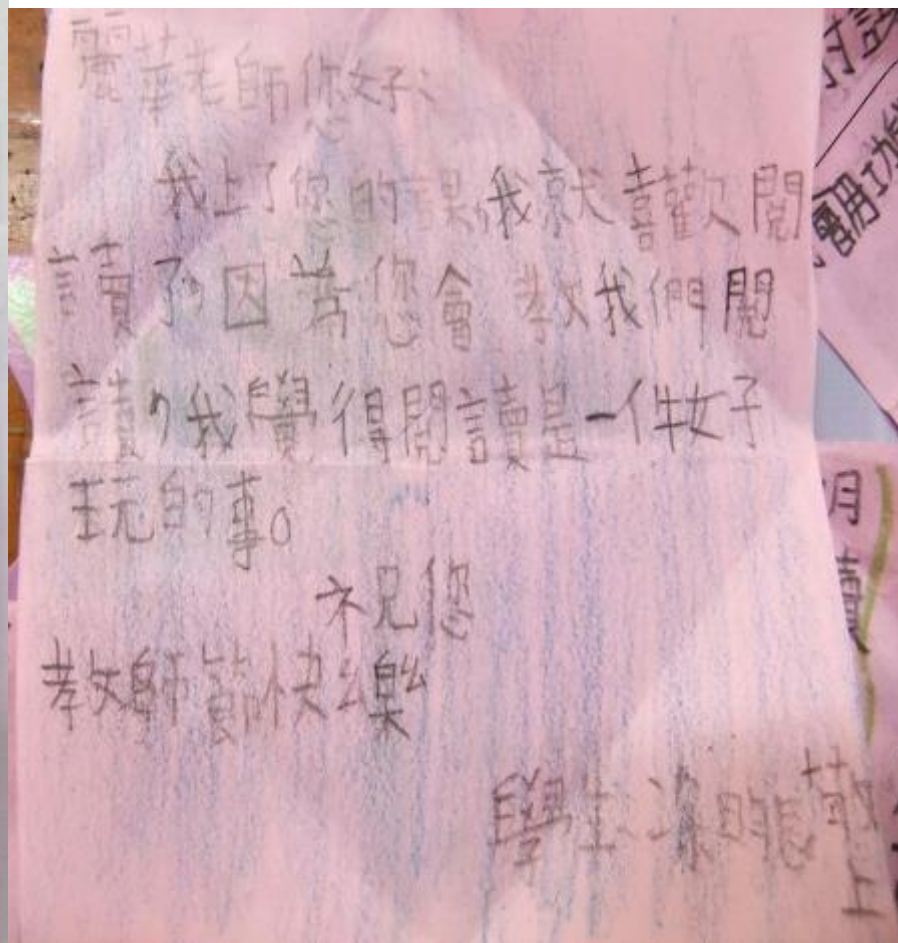 麗華老師您好、
我上了您的課,我就喜歡閱
讀了,因為您會教我們閱
讀,我覺得閱讀是一件好
玩的事。
祝您
教師節快樂
學生 敬
上